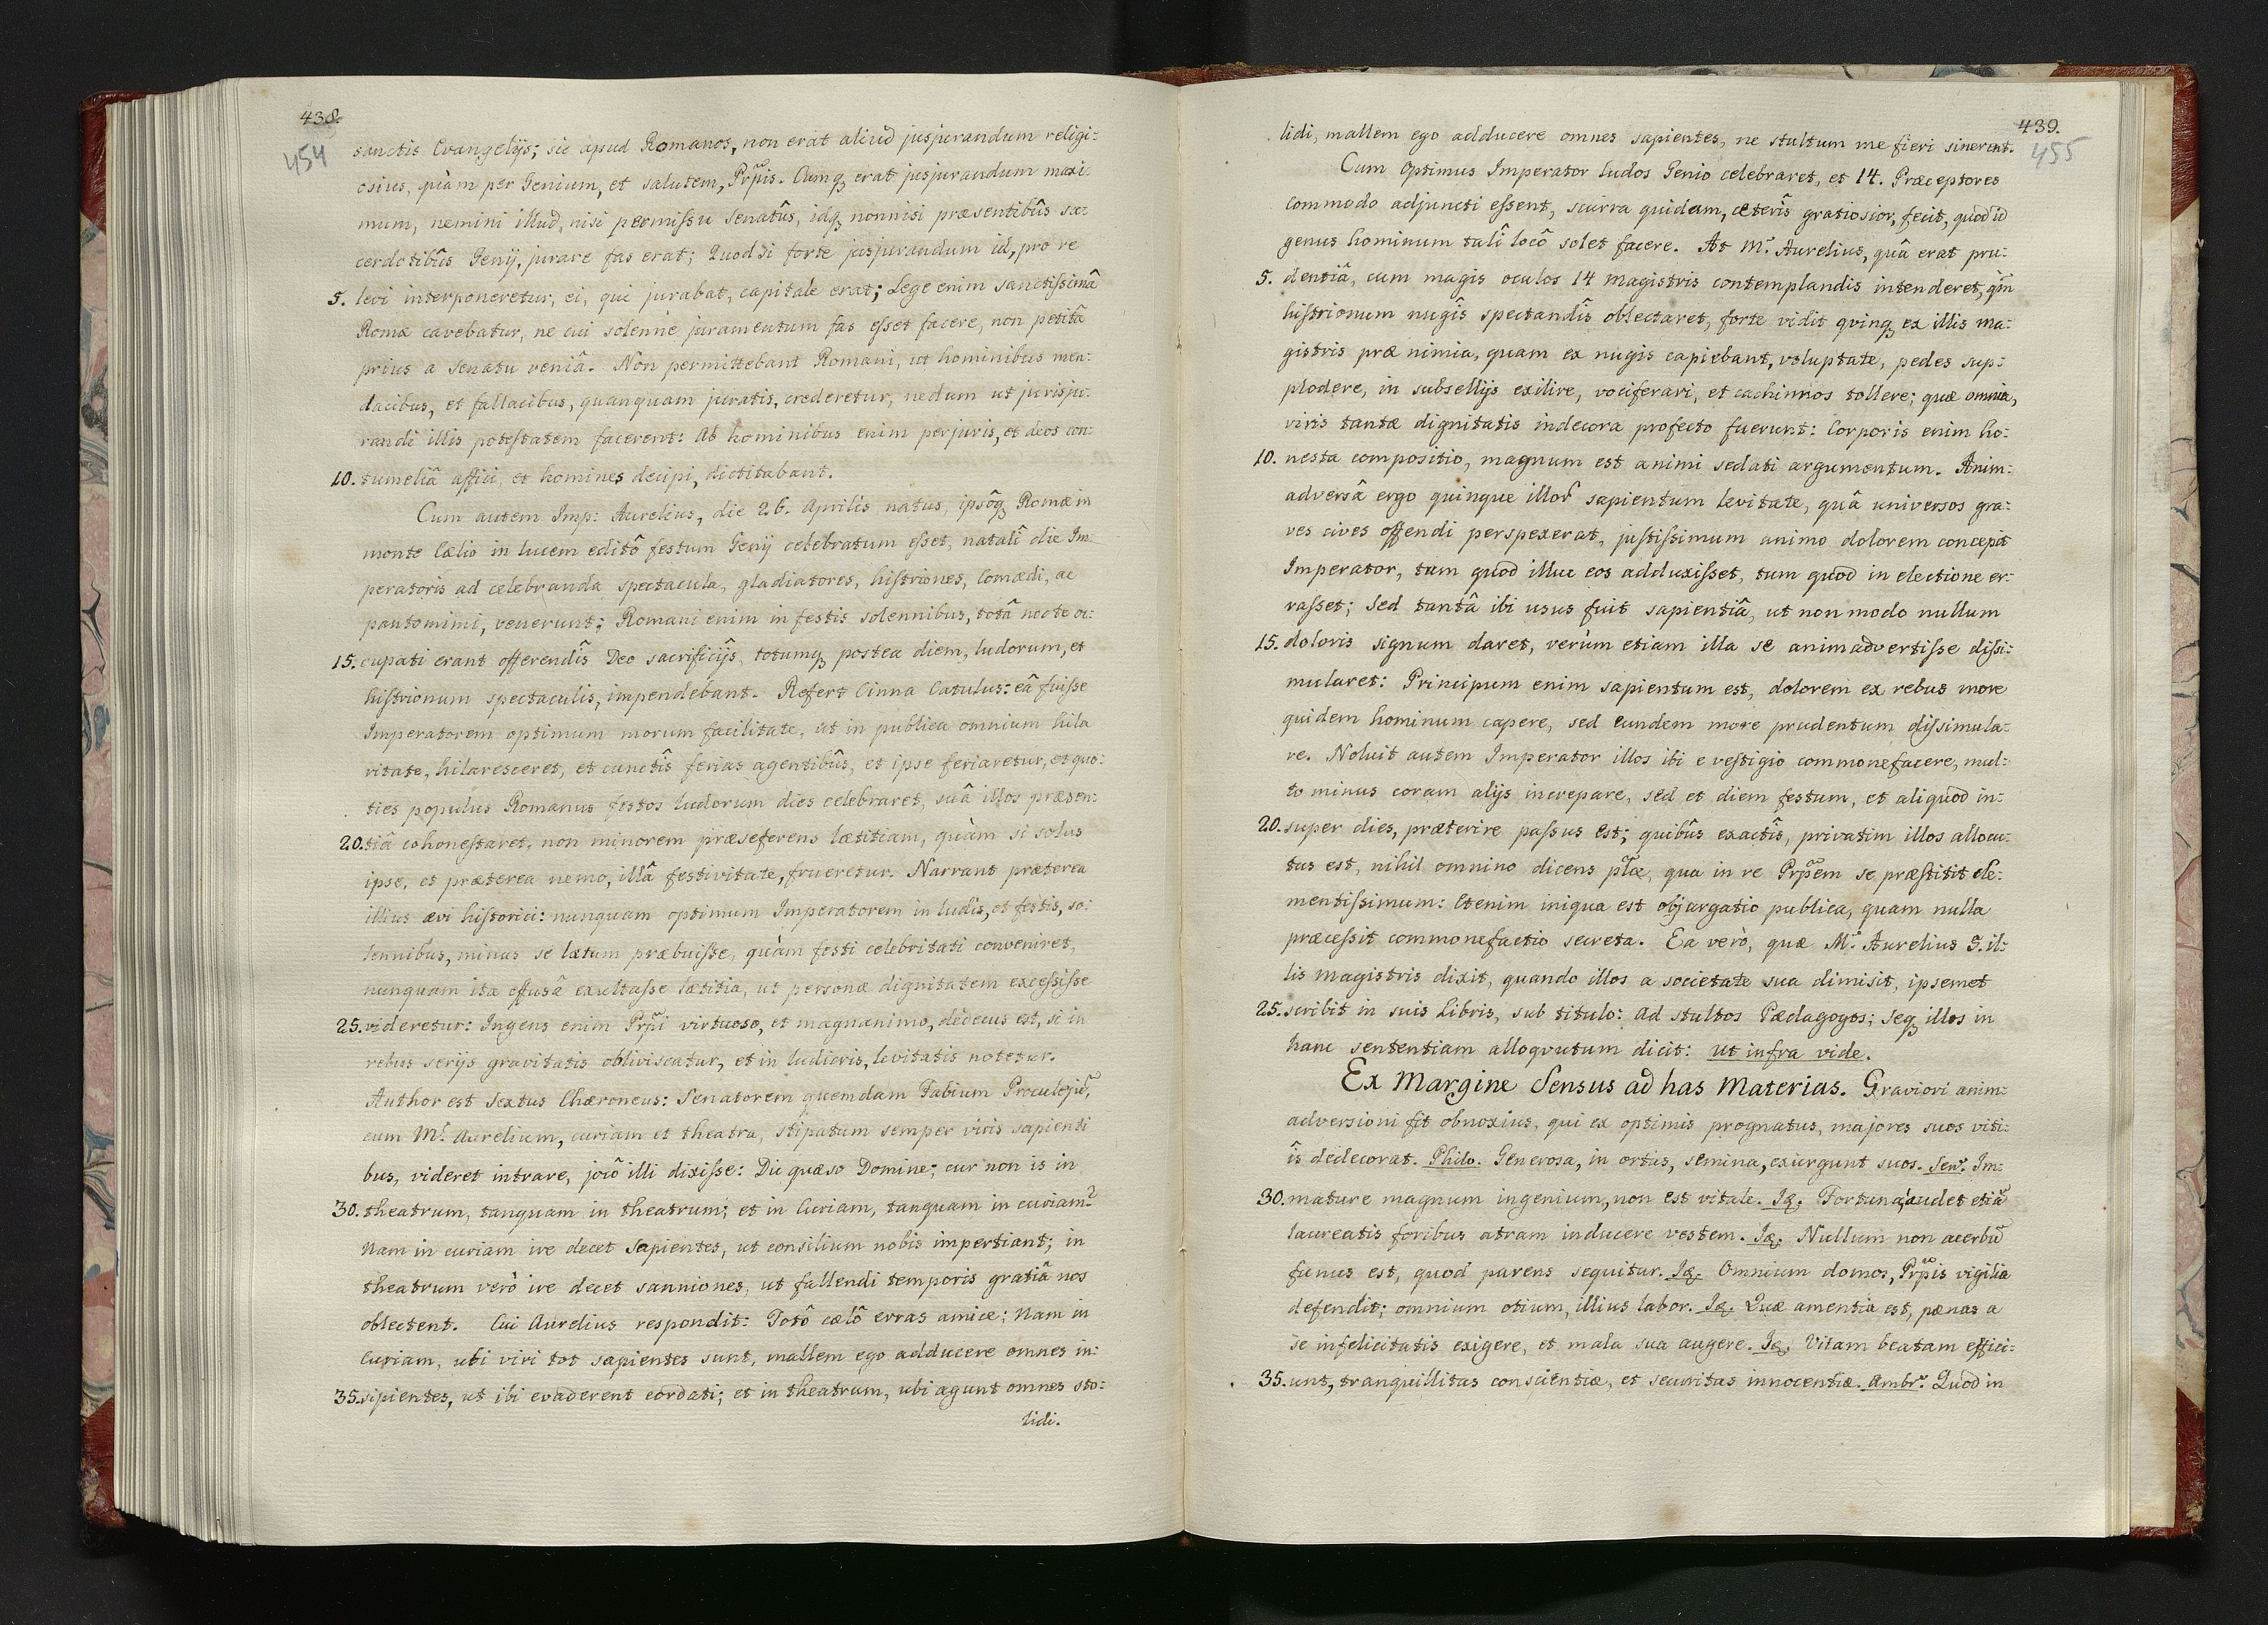 438.
454
sanctis Evangelijs; sic apud Romanos, non erat aliud jusjurandum religi:
osius, quàm per Genium, et salutem, Prpis. Cumq, erat jusjurandum maxi:
mum, nemini illud, nisi permissu Senatûs, idq, nonnisi præsentibûs sa:
cerdotibûs Genij, jurare fas erat; Quod si forte jusjurandum id, pro re
5. levi interponeretur, ei, qui jurabat, capitale erat; Lege enim sanctissimâ
Romæ cavebatur, ne cui solenne juramentum fas esset facere, non petitâ
prius a Senatu veniâ. Non permittebant Romani, ut hominibus men:
dacibus, et fallacibus, quanquam juratis, crederetur, nedum ut jurisju:
randi illis potestatem facerent: Ab hominibus enim perjuris, et deos con:
10. tumeliâ affici, et homines decipi, dictitabant.
Cum autem Imp: Aurelius, die 26. Aprilis natus, ipsôq, Romæ in
monte Cælio in lucem editô festum Genij celebratum esset, natalî die Im:
peratoris ad celebranda spectacula, gladiatores, histriones, Comædi, ac
pantomimi, venerunt; Romani enim in festis solennibus, totâ nocte oc:
15. cupati erant offerendîs Deo sacrificijs, totumq, postea diem, ludorum, et
histrionum spectaculis, impendebant. Refert Cinna Catulus: eâ fuisse
Imperatorem optimum morum facilitate, ut in publica omnium hila
ritate, hilaresceret, et cunctîs ferias agentibûs, et ipse feriaretur, et quo:
ties populus Romanus festos ludorum dies celebraret, suâ illos præsen:
20. tiâ cohonestaret, non minorem præseferens lætitiam, quàm si solus
ipse, et præterea nemo, illâ festivitate, frueretur. Narrant præterea
illius ævi historici: nunquam optimum Imperatorem in ludis, et festis, so:
lennibus, minus se lætum præbuisse, quàm festi celebritati conveniret,
nunquam ita effusâ exultasse lætitia, ut personæ dignitatem excessisse
25. videretur: Ingens enim Prpi virtuoso, et magnanimo, dedecus est, si in
rebus serijs gravitatis obliviscatur, et in ludicris, levitatis notetur.
Author est Sextus Chæroneus: Senatorem quemdam Fabium Proculejũ,
cum M. Aurelium, curiam et theatra, stipatum semper viris sapienti
bus, videret intrare, jocô illi dixisse: Dic quæso Domine; cur non is in
30. theatrum, tanquam in theatrum; et in Curiam, tanquam in curiam?
Nam in curiam ire decet Sapientes, ut consilium nobis impertiant; in
theatrum verò ire decet sanniones, ut fallendi temporis gratiâ nos
oblectent. Cui Aurelius respondit: Totô cælô erras amice; Nam in
Curiam, ubi viri tot sapientes sunt, mallem ego adducere omnes in:
35. sipientes, ut ibi evaderent cordati; et in theatrum, ubi agunt omnes sto:
lidi.
439.
455
lidi, mallem ego adducere omnes sapientes, ne stultum me fieri sinerent.
Cum Optimus Imperator ludos Genio celebraret, et 14. Præceptores
commodo adjuncti essent, scurra quidam, cæterîs gratiosior, fecit, quod id
genus hominum talî locô solet facere. At M. Aurelius, quâ erat pru:
5. dentiâ, cum magis oculos 14 Magistris contemplandis intenderet, qm̃
histrionum nugîs spectandîs oblectaret, forte vidit qvinq, ex illis ma:
gistris præ nimia, quam ex nugis capiebant, voluptate, pedes sup:
plodere, in subsellijs exilire, vociferari, et cachinnos tollere; quæ omnia,
viris tantæ dignitatis indecora profecto fuerunt: Corporis enim ho:
10. nesta compositio, magnum est animi sedati argumentum. Anim:
adversâ ergo quinque illor sapientum levitate, quâ universos gra:
ves cives offendi perspexerat, justissimum animo dolorem concepit
Imperator, tum quod illuc eos adduxisset, tum quod in electione er:
rasset; Sed tantâ ibi usus fuit sapientiâ, ut non modo nullum
15. doloris signum daret, verùm etiam illa se animadvertisse dissi:
mularet: Principum enim sapientum est, dolorem ex rebus more
quidem hominum capere, sed eundem more prudentum dissimula:
re. Noluit autem Imperator illos ibi e vestigio commonefacere, mul:
to minus coram alijs increpare, sed et diem festum, et aliquod in:
20. super dies, præterire passus est; quibûs exactîs, privatim illos allocu:
tus est, nihil omnino dicens plæ, qua in re Prpem se præstitit cle:
mentissimum: Etenim iniqua est objurgatio publica, quam nulla
præcessit commonefactio secreta. Ea verò, quæ M. Aurelius 5. il:
lis Magistris dixit, quando illos a societate sua dimisit, ipsemet
25. scribit in suis Libris, sub titulo: Ad stultos Pædagogos; Seq, illos in
hanc sententiam alloqvutum dicit: ut infra vide.
Ex Margine Sensus ad has Materias. Graviori anim:
adversioni fit obnoxius, qui ex optimis prognatus, majores suos viti:
îs dedecorat. Philo. Generosa, in ortus, semina, exurgunt suos. Sen. Im:
30. mature magnum ingenium, non est vitale. Iq. Fortuna, audet etiã
laureatis foribus atram inducere vestem. Iq. Nullum non acerbũ
funus est, quod parens sequitur. Iq. Omnium domos, Prpis vigilia
defendit; omnium otium, illius labor. Iq. Quæ amentia est, pænas a
se infelicitatis exigere, et mala sua augere. Iq. Vitam beatam effici:
35. unt, tranquillitas conscientiæ, et securitas innocentiæ. Ambr. Quod in